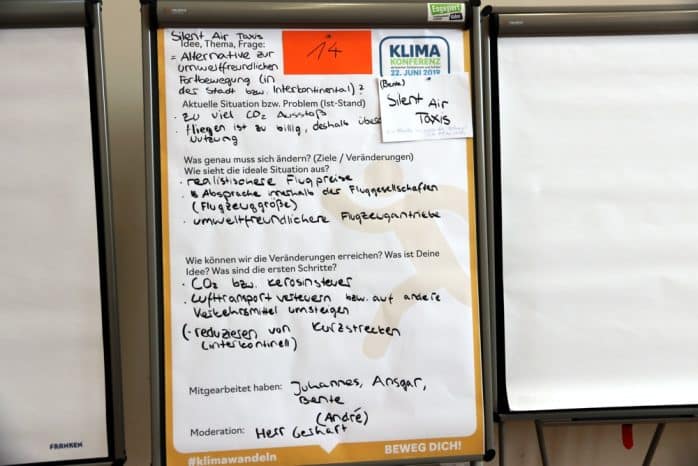 Silent Air Taxis
Idee, Thema, Frage:
= Alternative zur
umweltfreundlichen
Fortbewegung (in
der Stadt bzw. Interkontinental)?
14
Engagiert
KLIMA
KONFERENZ
22. JUNI 2019
(Bente)
Silent Air
Taxis
Aktuelle Situation bzw. Problem (Ist-Stand)
· zu viel CO2 Ausstoß
· fliegen ist zu billig, deshalb
nutzung
Was genau muss sich ändern? (Ziele / Veränderungen)
Wie sieht die ideale Situation aus?
· realistischere Flugpreise
· Absprache innerhalb der Fluggesellschaften
(Flugzeuggröße)
· umweltfreundlichere Flugzeugantriebe
Wie können wir die Veränderungen erreichen? Was ist Deine
Idee? Was sind die ersten Schritte?
· CO2 bzw. Kerosinsteuer
· Lufttransport verteuern bzw. auf andere
Verkehrsmittel umsteigen
(· reduzieren von Kurzstrecken
(interkontinell)
Mitgearbeitet haben: Johannes, Ansgar,
Bente
(André)
Moderation: Herr Geshart
#klimawandeln
BEWEG DICH!
FRANKEN